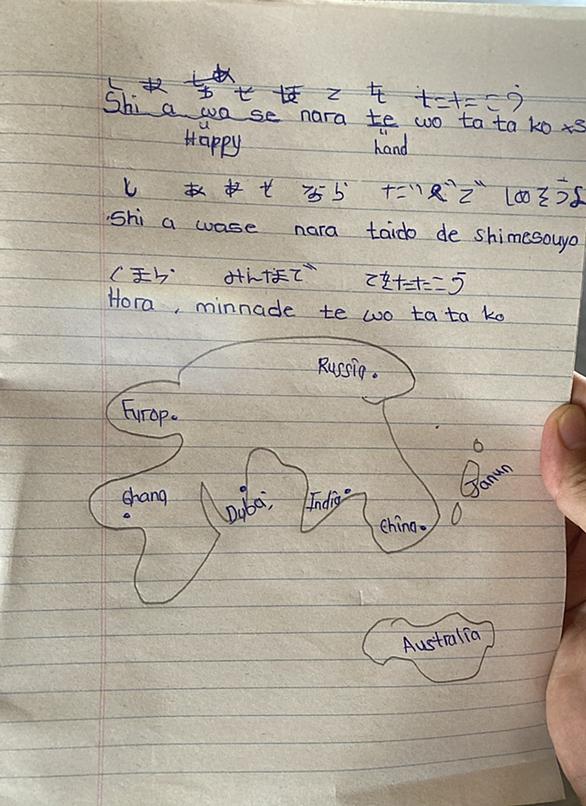 Shi a wa se nara te wo ta ta ko
Happy
hand
しあわせ なら たいど で しめそうよ
Shi a wase nara taido de shimesouyo
みんなで てをたたこう
Hora, minnade te wo ta ta ko
Russia.
Europ.
Ghana
Dubai,
India
China.
Australia